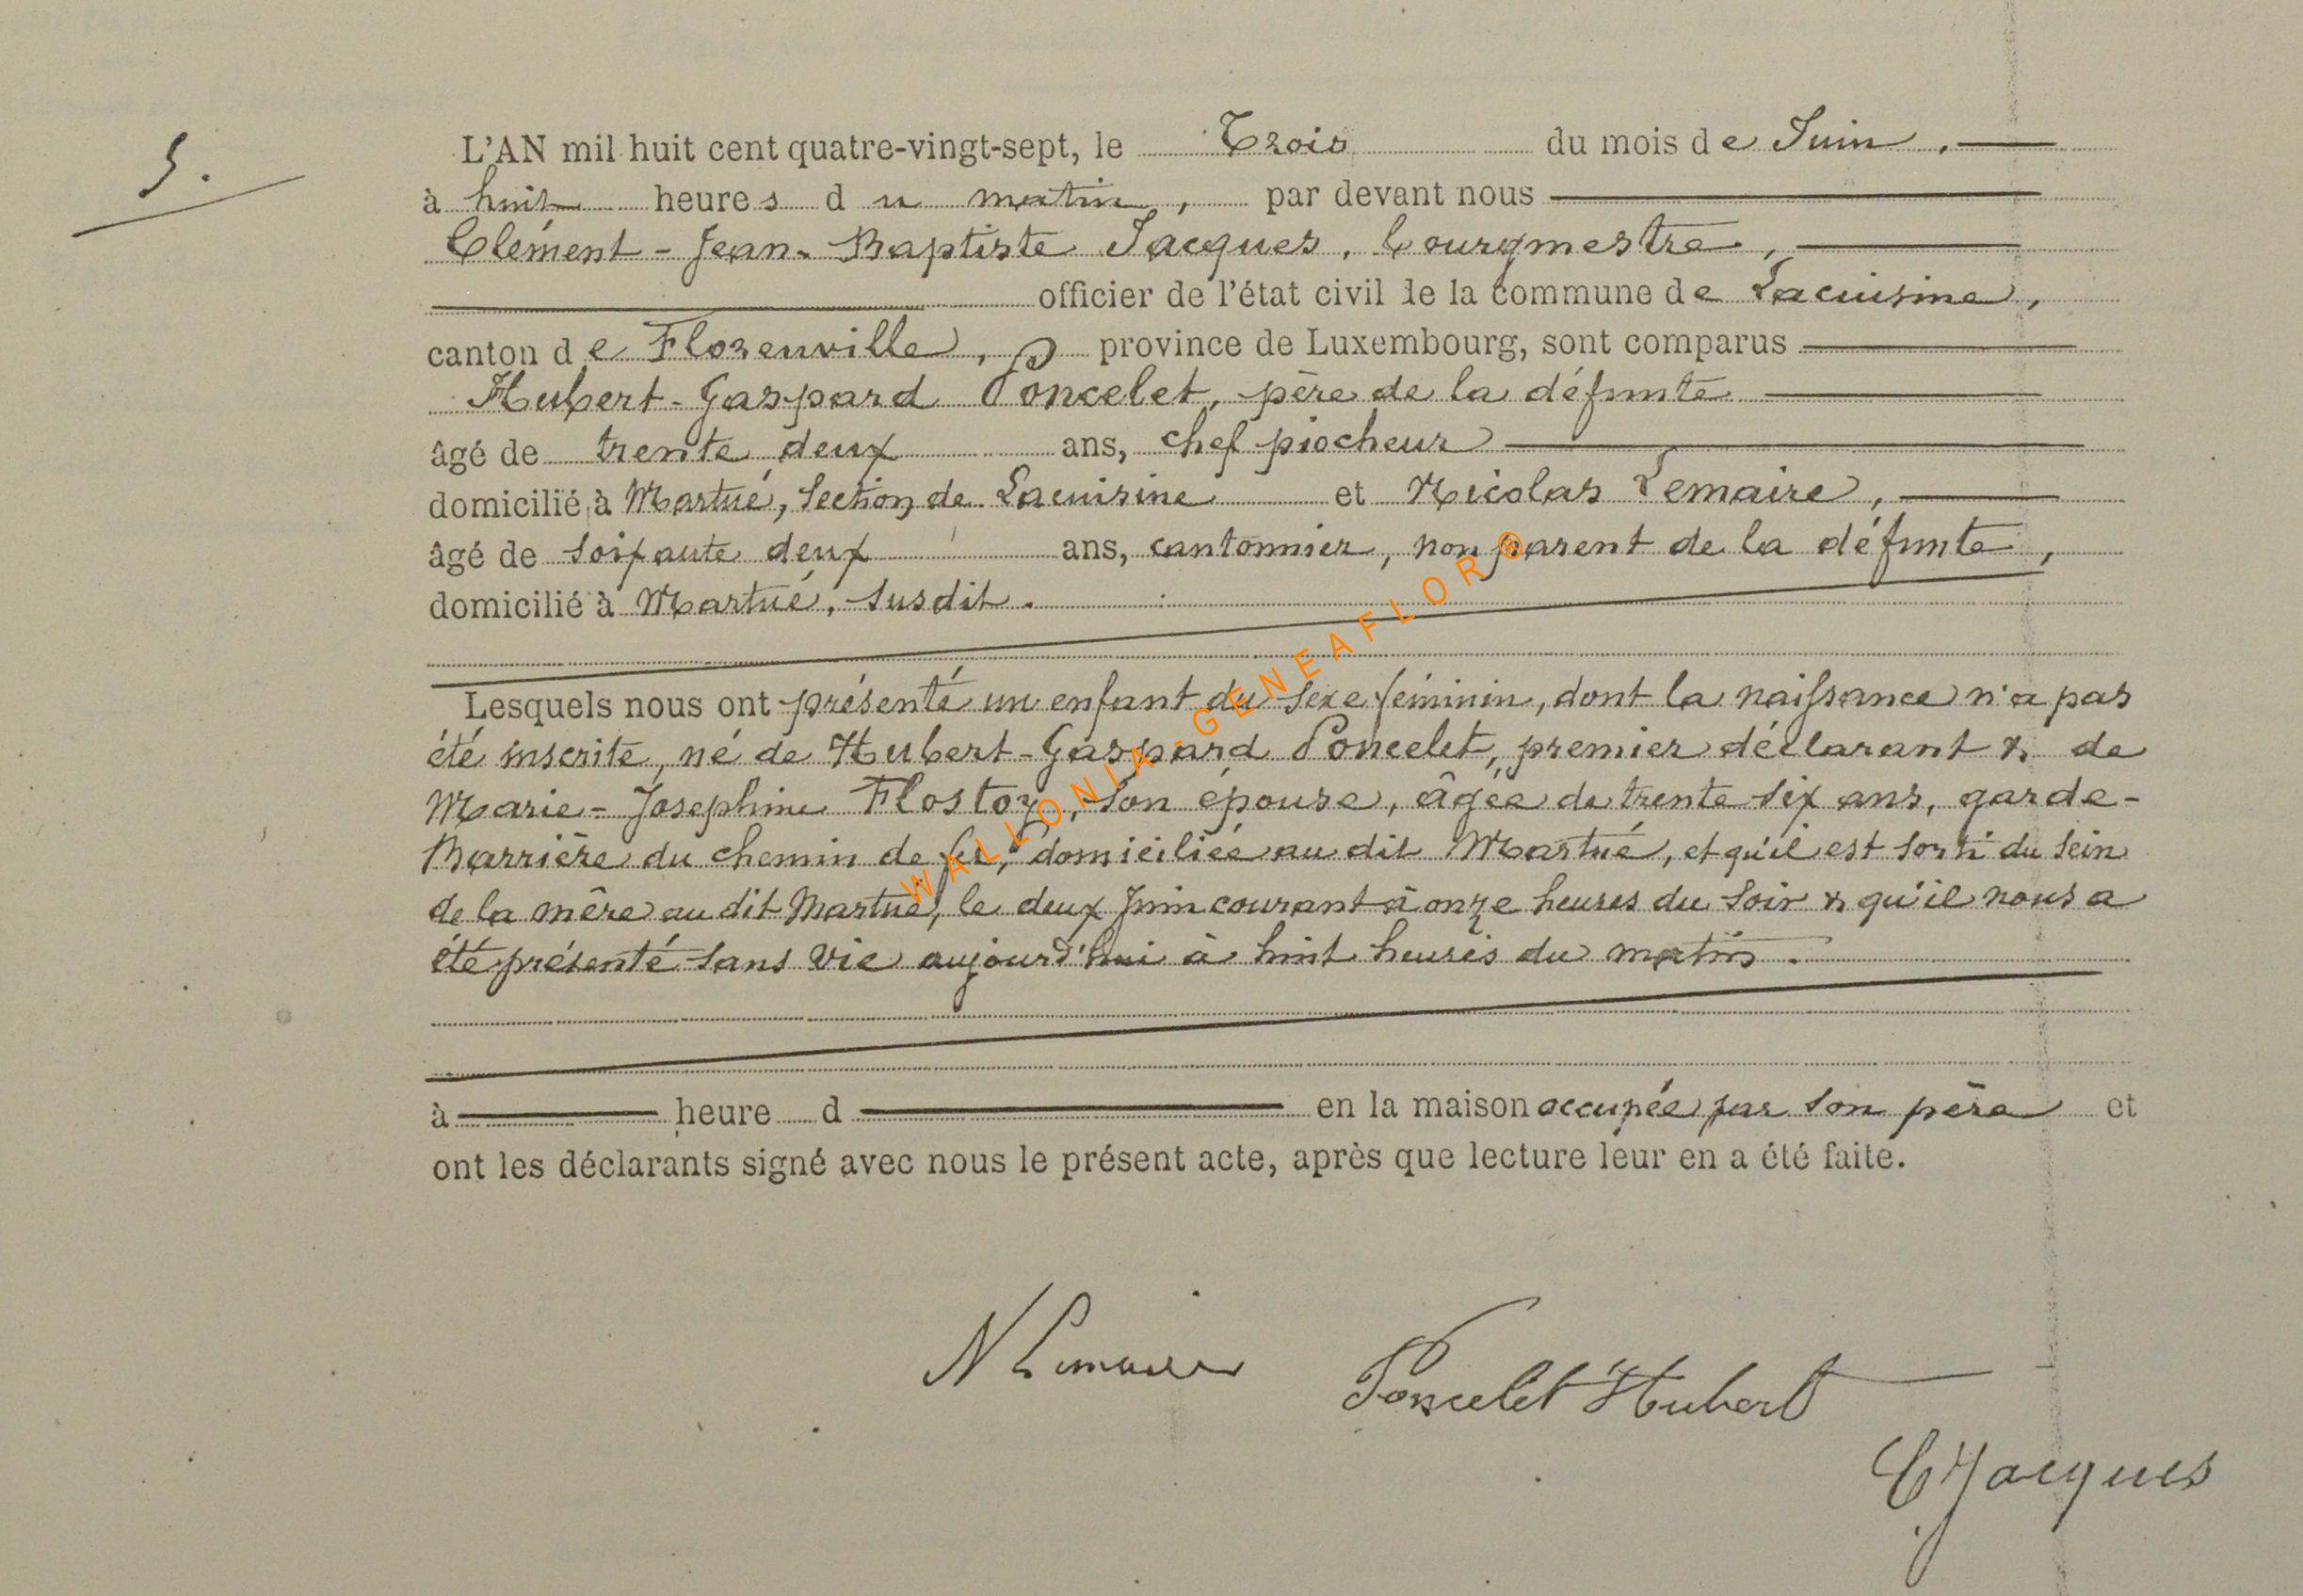 5.
L'AN mil huit cent quatre-vingt-sept, le Trois du mois de Juin,
à huit heures du matin, par devant nous
Clément-Jean-Baptiste Jacques, bourgmestre,
officier de l'état civil de la commune de Lacuisine,
canton de Florenville, province de Luxembourg, sont comparus
Hubert-Gaspard Poncelet, père de la défunte
âgé de trente deux ans, chef piocheur
domicilié à Martué, section de Lacuisine et Nicolas Lemaire,
âgé de soixante deux ans, cantonnier, non parent de la défunte,
domicilié à Martué, susdit.
Lesquels nous ont présenté un enfant du sexe féminin, dont la naissance n'a pas
été inscrite, né de Hubert-Gaspard Poncelet, premier déclarant & de
Marie-Josephine Flostoy, son épouse, âgée de trente six ans, garde-
Barrière du chemin de fer, domiciliée au dit Martué, et qu'il est sorti du sein
de la mère au dit Martué, le deux Juin courant à onze heures du soir & qu'il nous a
été présenté sans vie aujourd'hui à huit heures du matin.
à heure d en la maison occupée par son père et
ont les déclarants signé avec nous le présent acte, après que lecture leur en a été faite.
N Lemaire
Poncelet Hubert
CJacques
WALLONIA-GENEAFLOR®